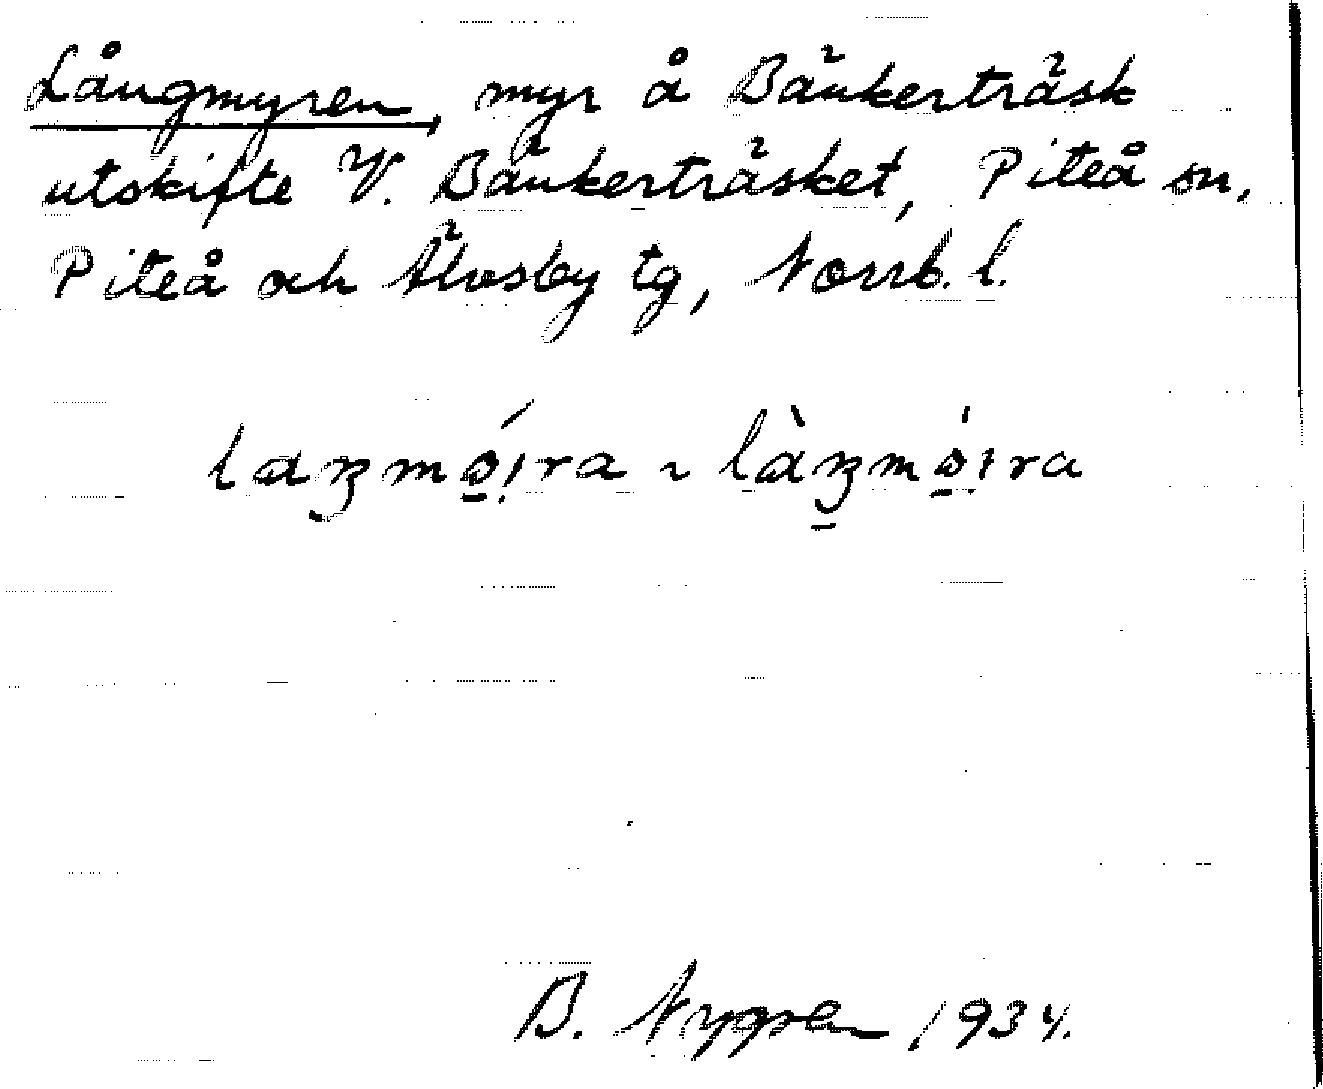 Långmyren, myr å Bänkerträsk
utskifte V. Bänkerträsket, Piteå sn,
Piteå och Älvsby tg, Norrb. l.
laŋmọ́ıra ~ làŋmọ̀ıra
B. Nygren 1934.